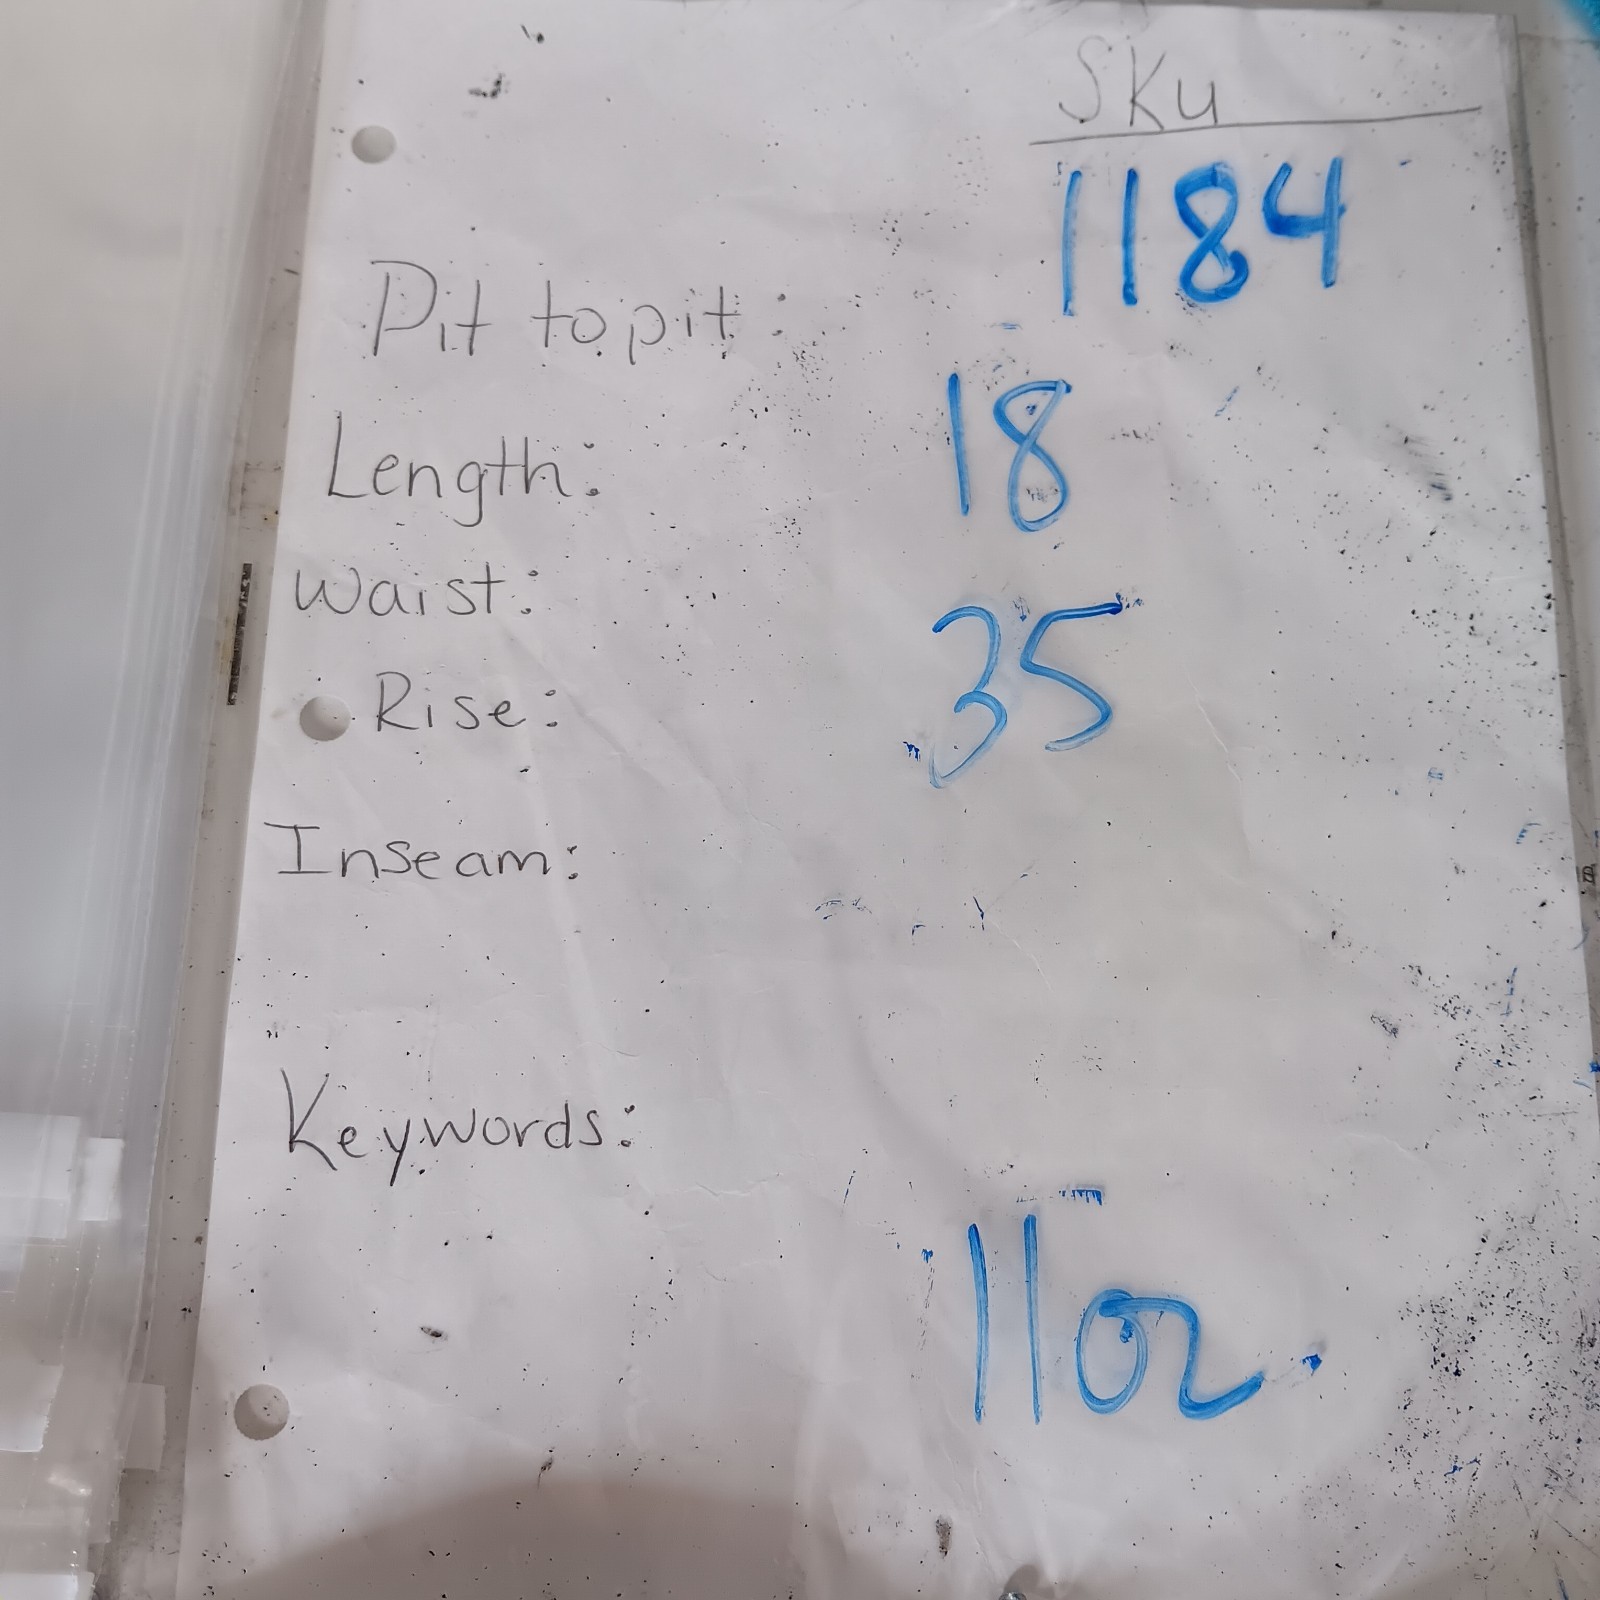 SKu
1184
Pit to pit:
18
Length:
Waist:
35
Rise:
Inseam:
Keywords:
11oz